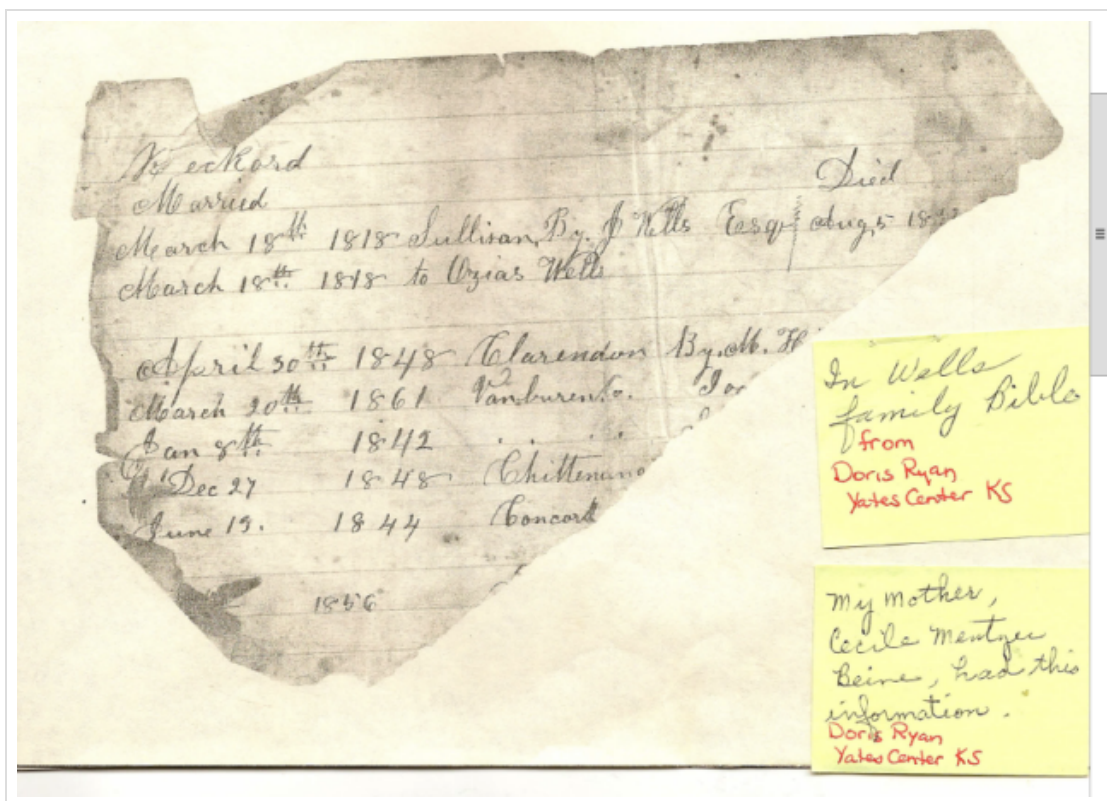 Reckord
Died
Married
March 18th 1818 Sullivan, By. J Wells Esqr Aug 5 18
March 18th 1818 to Ozias Wells
April 30th 1848 Clarendon By. M. H
March 20th 1861 Vanburen Co.
Jan 8th 1842 . . . . .
Dec 27 1848 Chittenang
June 19. 1844 Concord
1856
In Wells
family Bible
from
Doris Ryan
Yates Center KS
My mother,
Cecile Mentzer
Beine, had this
information.
Doris Ryan
Yates Center KS